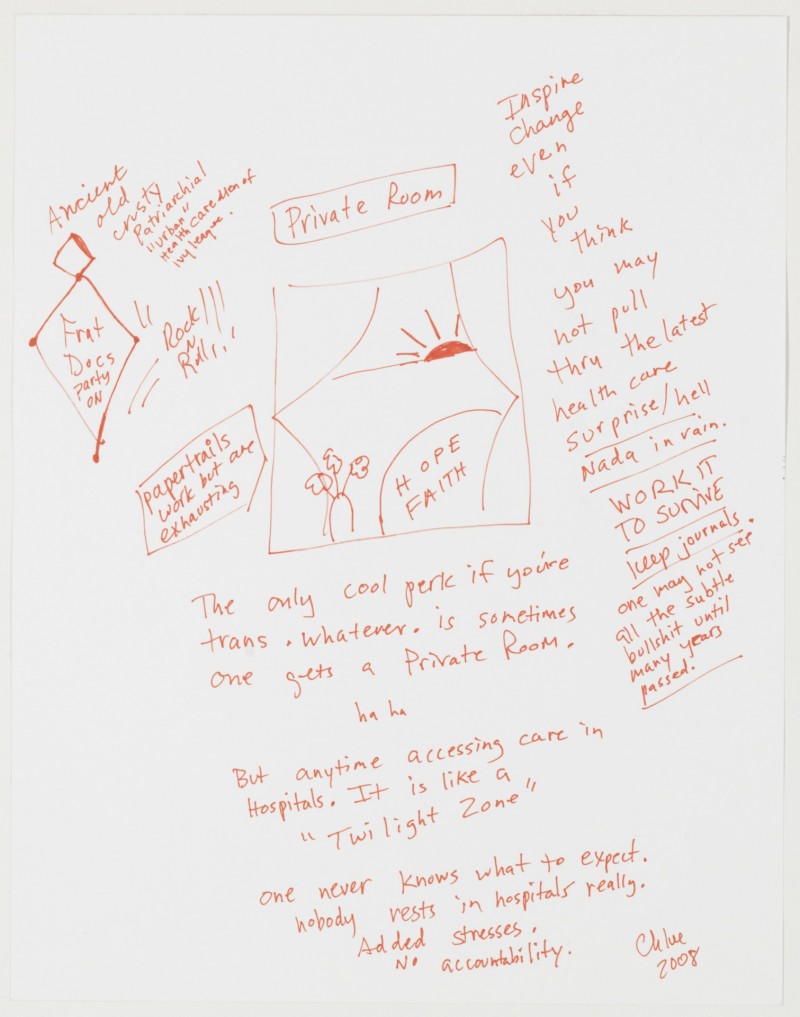 Ancient
old
crusty
Patriarchial
"urban"
Health Care Men of
Ivy league.
Frat
Docs
Party
ON
Rock!!!
N
Roll!!
papertrails
work but are
exhausting
Private Room
HOPE
FAITH
Inspire
change
even
if
you
think
you may
not pull
thru the latest
health care
surprise/hell
Nada in vain.
WORK IT
TO SURVIVE
keep journals.
one may not see
all the subtle
bullshit until
many years
passed.
The only cool perk if you're
trans. whatever. is sometimes
one gets a Private Room.
ha ha
But anytime accessing care in
Hospitals. It is like a
"Twilight Zone"
one never knows what to expect.
nobody rests in hospitals really.
Added stresses.
No accountability.
Chloe
2008